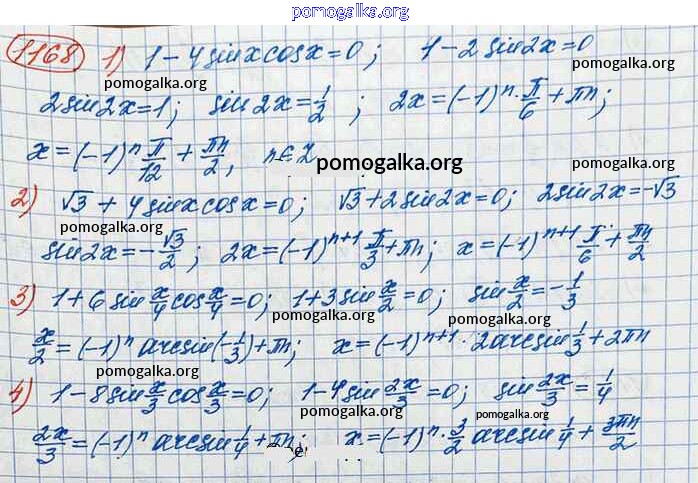 pomogalka.org
1168 1) 1 - 4 sin x cos x = 0; 1 - 2 sin 2x = 0
pomogalka.org pomogalka.org
2 sin 2x = 1; sin 2x = 1/2; 2x = (-1)^n · π/6 + πn;
x = (-1)^n π/12 + πn/2, n ∈ Z
pomogalka.org pomogalka.org
2) √3 + 4 sin x cos x = 0; √3 + 2 sin 2x = 0; 2 sin 2x = -√3
pomogalka.org
sin 2x = -√3/2; 2x = (-1)^{n+1} π/3 + πn; x = (-1)^{n+1} π/6 + πn/2
3) 1 + 6 sin x/4 cos x/4 = 0; 1 + 3 sin x/2 = 0; sin x/2 = -1/3
pomogalka.org
x/2 = (-1)^n arcsin(-1/3) + πn; x = (-1)^{n+1} · 2 arcsin 1/3 + 2πn
pomogalka.org pomogalka.org
4) 1 - 8 sin x/3 cos x/3 = 0; 1 - 4 sin 2x/3 = 0; sin 2x/3 = 1/4
pomogalka.org pomogalka.org
2x/3 = (-1)^n arcsin 1/4 + πn; x = (-1)^n · 3/2 arcsin 1/4 + 3πn/2